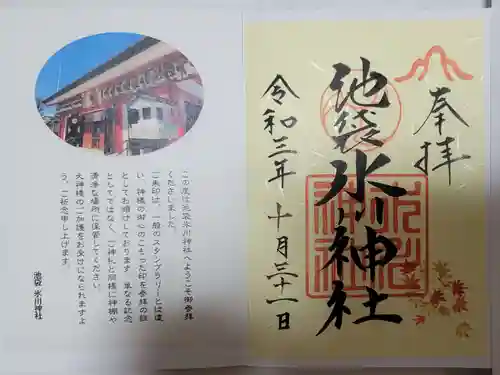 奉拝
池袋氷川神社
令和三年十月三十一日
この度は池袋氷川神社へようこそ御参拝
くださいました。
ご朱印は、一般のスタンプラリーとは違
い、神様の御心のこもった印を参拝の証
としてお頒けしております。単なる記念
としてではなく、ご神札と同様に神棚や
清浄な場所に保管してください。
大神様のご加護をお受けになられますよ
う、ご祈念申し上げます。
池袋 氷川神社